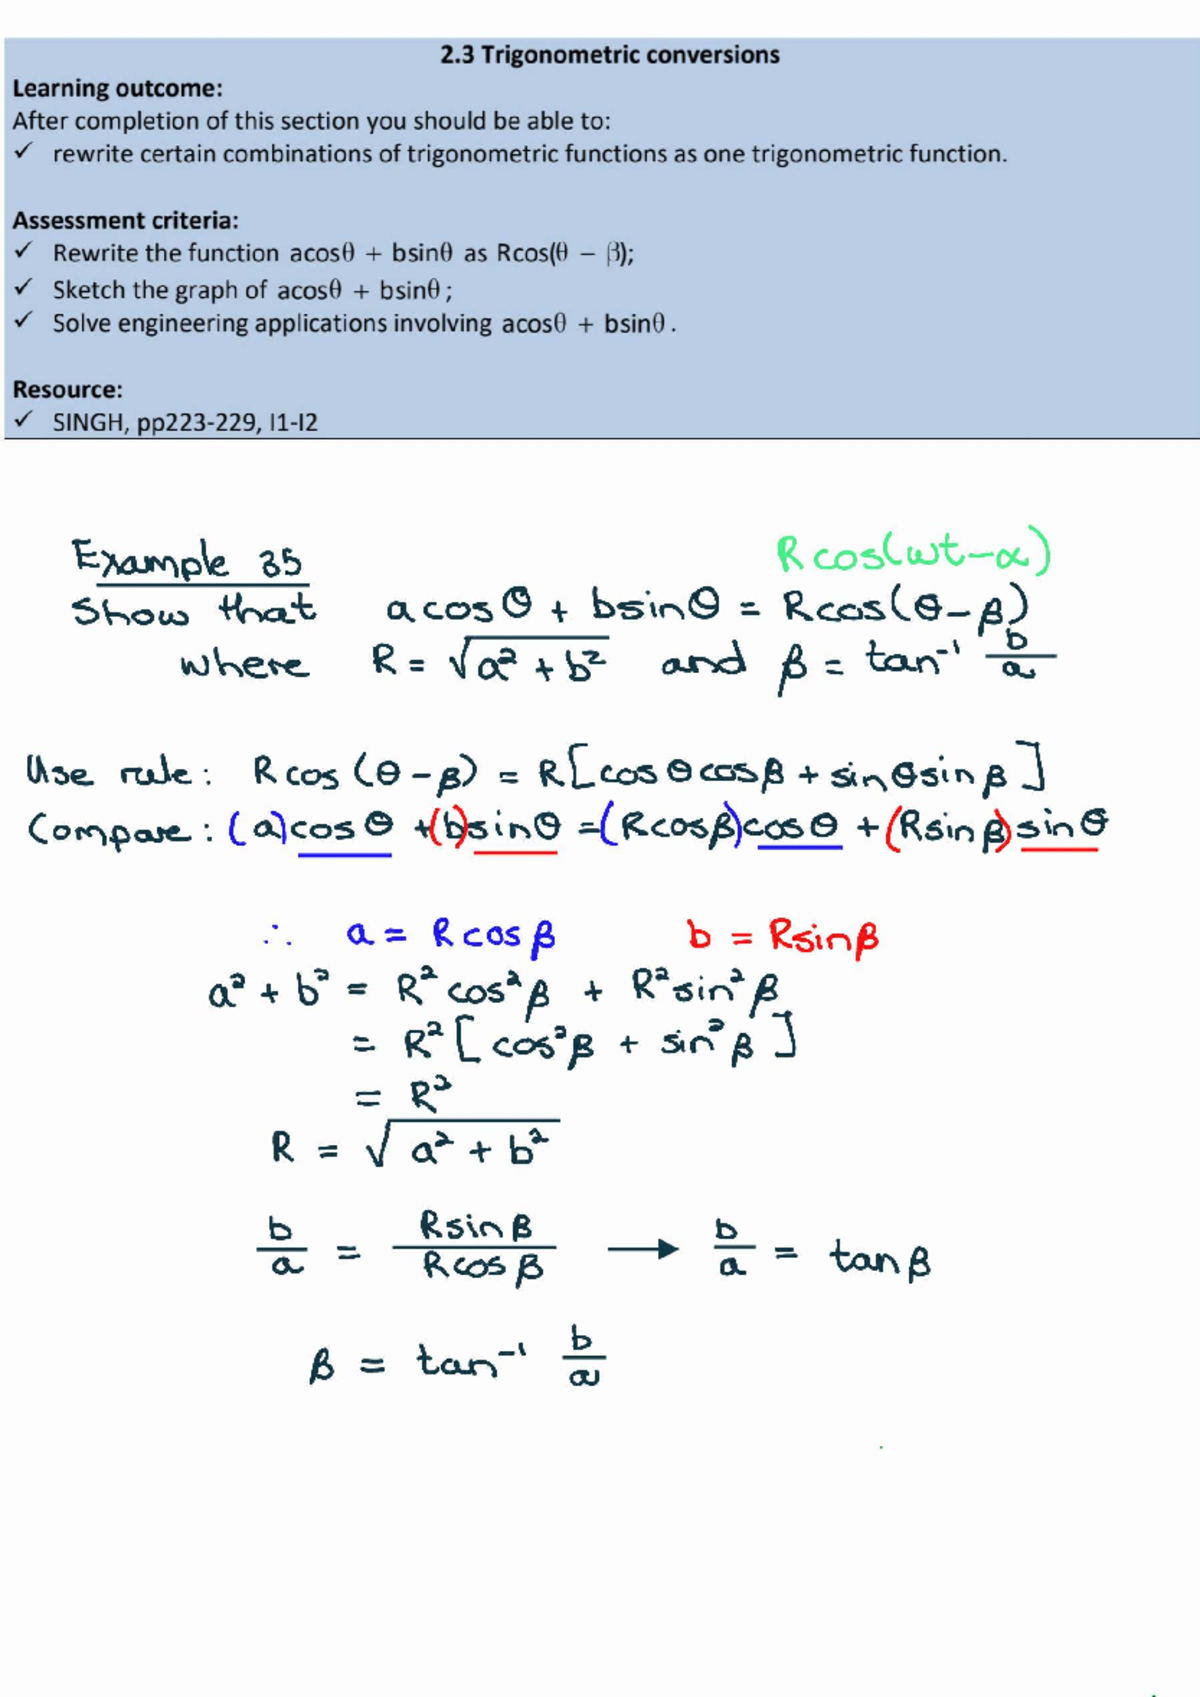 2.3 Trigonometric conversions
Learning outcome:
After completion of this section you should be able to:
✓ rewrite certain combinations of trigonometric functions as one trigonometric function.
Assessment criteria:
✓ Rewrite the function acosθ + bsinθ as Rcos(θ − β);
✓ Sketch the graph of acosθ + bsinθ ;
✓ Solve engineering applications involving acosθ + bsinθ .
Resource:
✓ SINGH, pp223-229, I1-I2
Example 35
R cos(ωt−α)
Show that a cos θ + b sin θ = R cos(θ − β)
where R = √(a² + b²) and β = tan⁻¹ b/a
Use rule: R cos (θ − β) = R[cos θ cos β + sin θ sin β]
Compare: (a)cos θ +(b)sin θ =(R cos β)cos θ + (R sin β) sin θ
∴ a = R cos β b = R sin β
a² + b² = R² cos² β + R² sin² β
= R² [ cos² β + sin² β ]
= R²
R = √(a² + b²)
b/a = R sin β / R cos β → b/a = tan β
β = tan⁻¹ b/a